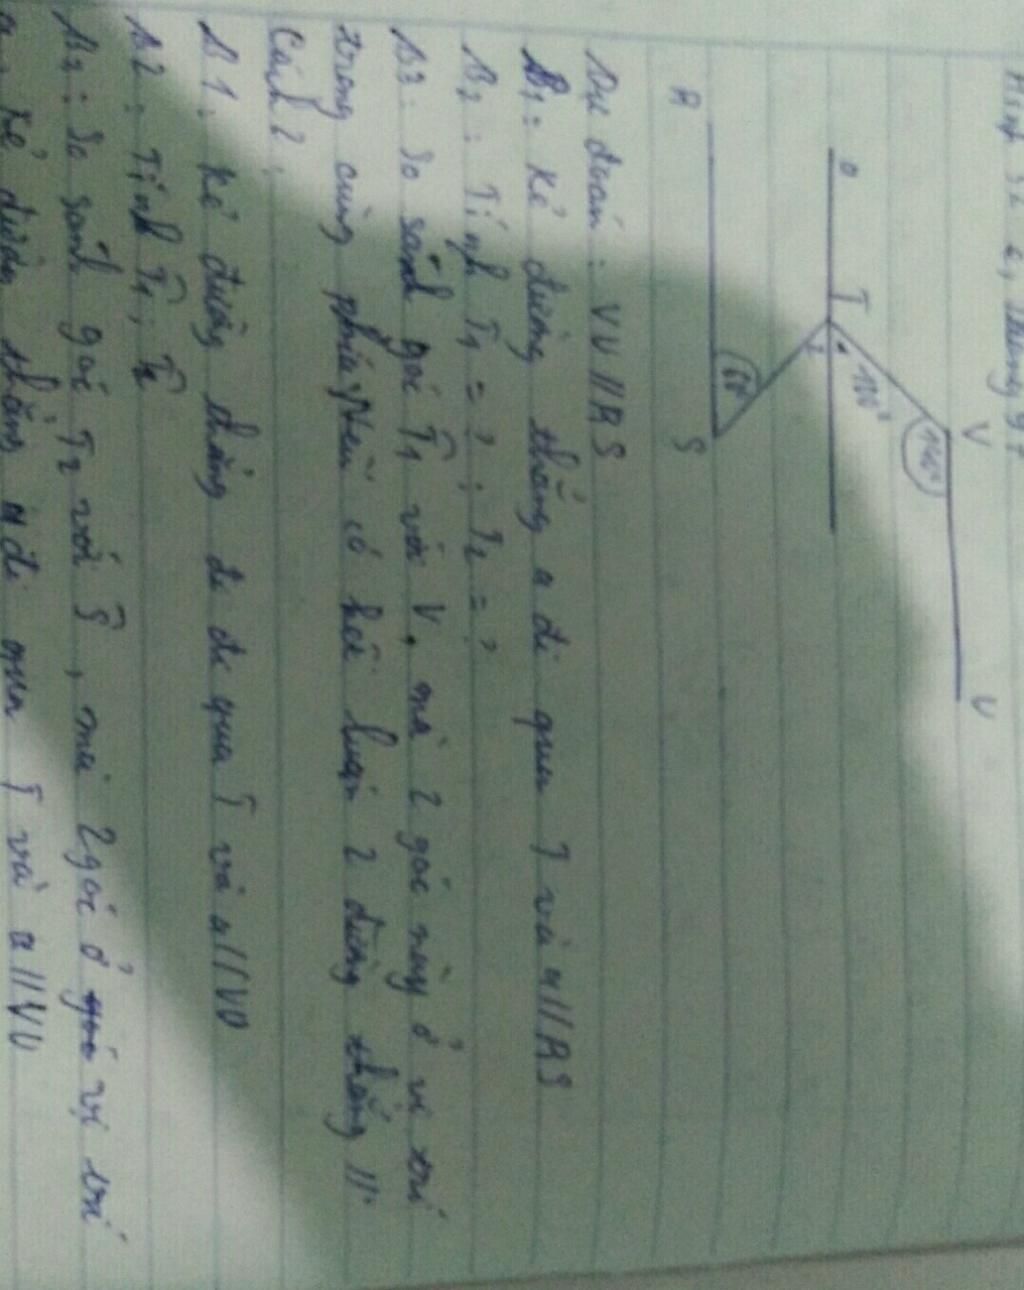 Hình 32 c, trang 97
V
U
140°
a
T
1
100°
2
60°
A
S
Dự đoán: VU // AS
B1: Kẻ đường thẳng a đi qua T và a // AS
B2: Tính T̂1 = ? ; T2 = ?
B3: So sánh góc T̂1 với V, mà 2 góc này ở vị trí
trong cùng phía, nếu có kết luận 2 đường thẳng //.
Cách 2:
B1: Kẻ đường thẳng đi đi qua T và a // VU
B2: Tính T̂1; T̂2
B3: So sánh góc T2 với Ŝ, mà 2 góc ở vị trí
Kẻ đường thẳng a đi qua T và a // VU